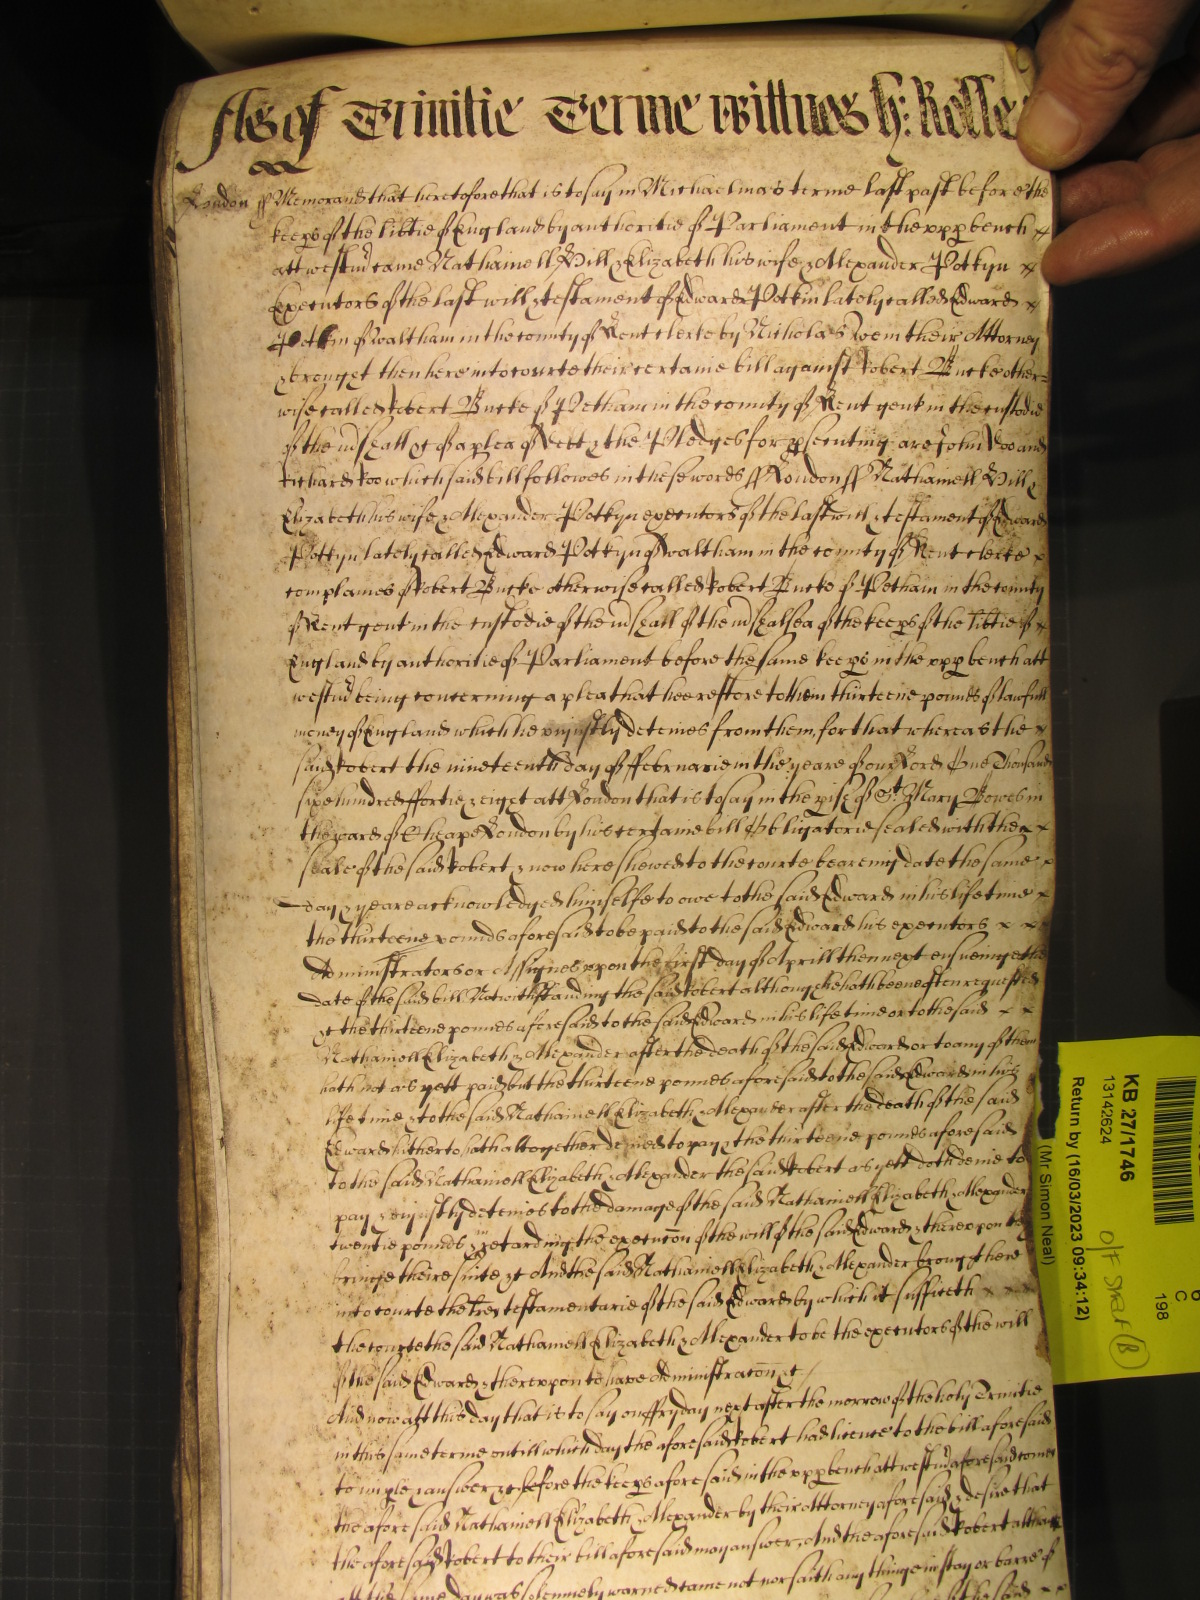 As of Trinitie Terme wittnes H: Rolle
London ss Memorand that heretofore that is to say in Michaelmas terme last past before the
keeps of the libtie of England by authoritie of Parliament in the upp bench
att westm came Nathaniell Hill & Elizabeth his wife & Alexander Potkyn
Executors of the last will & testament of Edward Potkin lately called Edward
Potkin of Waltham in the county of Kent clerke by Nicholas their Attorney
& brought then here into courte their certaine bill against Robert Bucke other=
wise called Robert Bucke of Petham in the county of Kent gent in the custodie
of the mshall &c of a plea of Debt & the Pledges for psecuting are John Doo and
Richard Roo which said bill followes in these words ss London ss Nathaniell Hill &
Elizabeth his wife & Alexander Potkyn executors of the last will & testament of Edward
Potkyn lately called Edward Potkyn of Waltham in the county of Kent clerke
complaines of Robert Bucke otherwise called Robert Bucke of Petham in the county
of Kent gent in the custodie of the mshall of the mshalsea of the keeps of the libtie of
England by authoritie of Parliament before the same keeps in the upp bench att
westm being concerning a plea that hee restore to them thirteene pounds of lawfull
money of England which he unjustly deteines from them, for that whereas the
said Robert the nineteenth day of ffebruarie in the yeare of our Lord One Thousand
sixe hundred fortie & eight att London that is to say in the pish of St. Mary Bowes in
the ward of Cheape London by his certaine bill Obligatorie sealed with the
seale of the said Robert & now here shewed to the courte beareing date the same
day & yeare acknowledged himselfe to owe to the said Edward in his life time
the thirteene pounds aforesaid to be paid to the said Edward his executors
Administrators or Assignes upon the first day of Aprill then next ensueing the
date of the said bill Notwithstanding the said Robert although he hath beene often requested
&c the thirteene pounds aforesaid to the said Edward in his life time or to the said
Nathaniell Elizabeth & Alexander after the death of the said Edward or to any of them
hath not as yett paid but the thirteene pounds aforesaid to the said Edward in his
life time & to the said Nathaniell Elizabeth & Alexander after the death of the said
Edward hitherto hath altogether denied to pay & the thirteene pounds aforesaid
to the said Nathaniell Elizabeth & Alexander the said Robert as yett doth denie to
pay & unjustly deteines to the damage of the said Nathaniell Elizabeth & Alexander
twentie pounds & in retarding the execucon of the will of the said Edward & thereupon they
bringe theire suite &c And the said Nathaniell Elizabeth & Alexander brought here
into courte the lres testamentarie of the said Edward by which it sufficeth
the courte the said Nathaniell Elizabeth & Alexander to be the executors of the will
of the said Edward & thereupon to have Administracon &c/
And now att this day that is to say on ffryday next after the morrow of the holy Trinitie
in this same terme untill which day the aforesaid Robert had licence to the bill aforesaid
to imple & answer &c before the keeps aforesaid in the upp bench att westm aforesaid comes
the aforesaid Nathaniell Elizabeth & Alexander by their Attorney aforesaid & desire that
the aforesaid Robert to their bill aforesaid may answer, And the aforesaid Robert although
att the same day was solemnely warned came not nor saith any thinge in stay or barre of
KB 27/1746
13142624
Return by (16/03/2023 09:34:12)
(Mr Simon Neal)
198
C